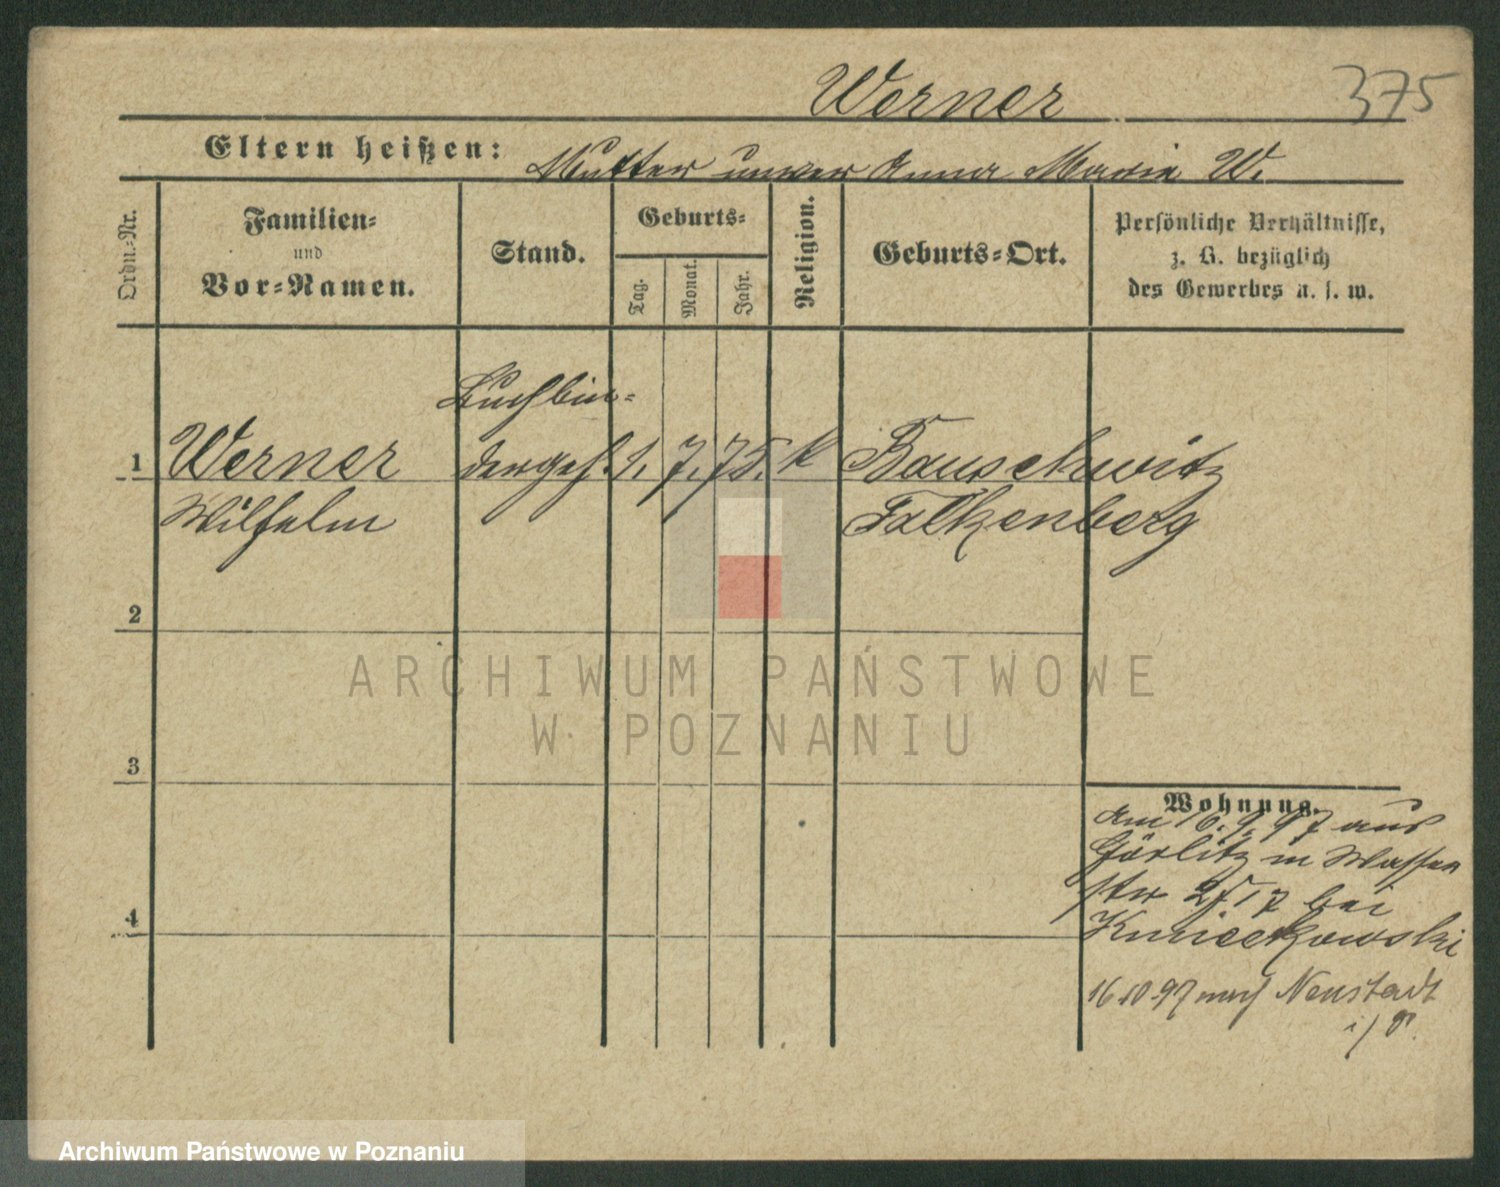 Werner 375
Eltern heißen: Mutter unver Anna Marie W.
Ordn.-Nr.
Familien-
und
Vor-Namen.
Stand.
Geburts-
Tag.
Monat.
Jahr.
Religion.
Geburts-Ort.
Persönliche Verhältnisse,
z. B. bezüglich
des Gewerbes u. s. w.
Buchbin-
1 Werner dergeh. 1. 7. 75. k Bauschwitz
Wilhelm Falkenberg
2
3
4
Wohnung.
am 16.9.97 aus
Görlitz in Wasser
str 25 17 bei
Kmieckowski
16.10.97 nach Neustadt
ARCHIWUM PAŃSTWOWE
W POZNANIU
Archiwum Państwowe w Poznaniu